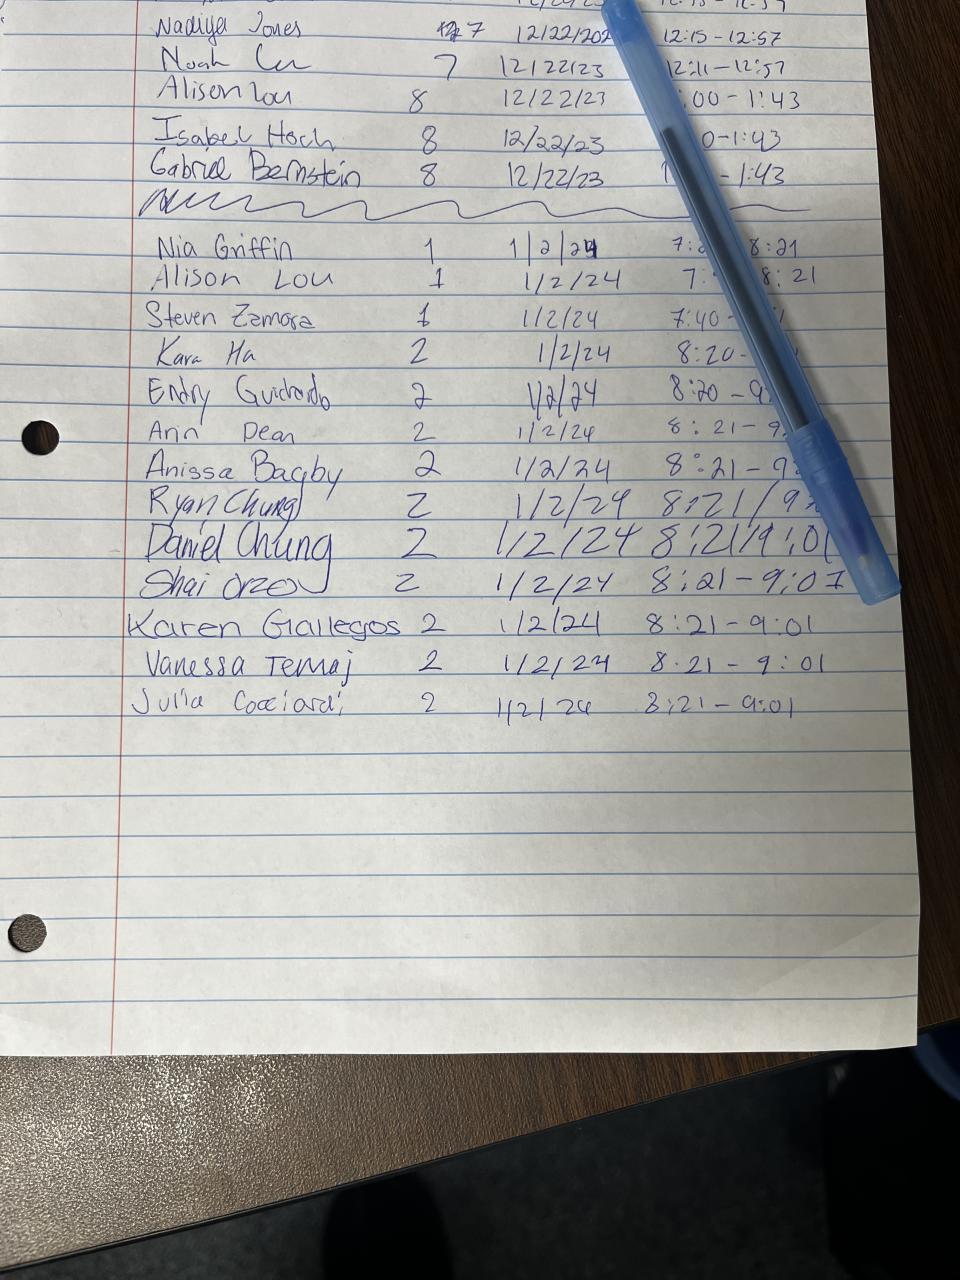 Nadiya Jones 7 12/22/202 12:15-12:57
Noah 7 12/22/23 12:11-12:57
Alison Lou 8 12/22/23 :00-1:43
Isabel Hoch 8 12/22/23 0-1:43
Gabriel Bernstein 8 12/22/23 1 -1:43
Nia Griffin 1 1/2/24 7:2 8:21
Alison Lou 1 1/2/24 7: 8:21
Steven Zamora 1 1/2/24 7:40-
Kara Ha 2 1/2/24 8:20-
Endry Guichardo 2 1/2/24 8:20-9
Ann Dean 2 1/2/24 8:21-9
Anissa Bagby 2 1/2/24 8:21-9
Ryan Chung 2 1/2/24 8:21/9
Daniel Chung 2 1/2/24 8:21/9:01
Shai Orzov 2 1/2/24 8:21-9:07
Karen Gallegos 2 1/2/24 8:21-9:01
Vanessa Temaj 2 1/2/24 8:21-9:01
Julia Cocciardi 2 1/2/24 8:21-9:01